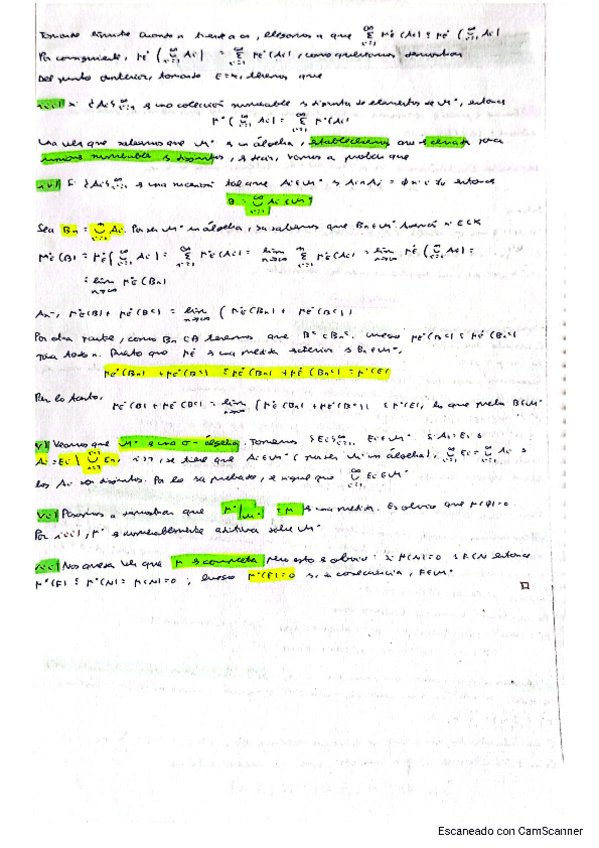 Tomando límite cuando n tiende a ∞, llegamos a que Σ μ*_E (A_i) ≤ μ*_E (∪ A_i)
Por consiguiente, μ*_E (∪ A_i) = Σ μ*_E (A_i), como queríamos demostrar
Del punto anterior, tomando E = X, tenemos que
iii) Si {A_i} es una colección numerable y disjunta de elementos de M*, entonces
μ*(∪ A_i) = Σ μ*(A_i)
Una vez que sabemos que M* es un álgebra, establecemos que es cerrada para
uniones numerables y disjuntas, es decir, vamos a probar que
iv) Si {A_i} es una sucesión tal que A_i ∈ M* y A_i ∩ A_j = ∅ entonces
B = ∪ A_i ∈ M*
Sea B_n = ∪ A_i. Por ser M* un álgebra, sabemos que B_n ∈ M*
μ*_E (B) = μ*_E (∪ A_i) = Σ μ*_E (A_i) = lim Σ μ*_E (A_i) = lim μ*_E (∪ A_i) =
= lim μ*_E (B_n)
Así, μ*_E (B) + μ*_E (B^c) = lim (μ*_E (B_n) + μ*_E (B^c))
Por otra parte, como B_n ⊂ B tenemos que B^c ⊂ B_n^c. Luego μ*_E (B^c) ≤ μ*_E (B_n^c)
para todo n. Puesto que μ*_E es una medida exterior y B_n ∈ M*,
μ*_E (B_n) + μ*_E (B^c) ≤ μ*_E (B_n) + μ*_E (B_n^c) = μ*(E)
Por lo tanto,
μ*_E (B) + μ*_E (B^c) = lim (μ*_E (B_n) + μ*_E (B^c)) ≤ μ*(E), lo que prueba B ∈ M*
v) Veamos que M* es una σ-álgebra. Tomemos {E_i}, E_i ∈ M*. Si A_1 = E_1 y
A_i = E_i \ ∪ E_n, i > 1, se tiene que A_i ∈ M* (por ser M* un álgebra), ∪ E_i = ∪ A_i y
los A_i son disjuntos. Por lo ya probado, se sigue que ∪ E_i ∈ M*
vi) Pasamos a demostrar que μ*|M* = μ es una medida. Es obvio que μ(∅) = 0
Por iii), μ* es numerablemente aditiva sobre M*
vii) Nos queda ver que μ es completa pero esto es obvio: si μ(N) = 0 y F ⊂ N entonces
μ*(F) ≤ μ*(N) = μ(N) = 0; luego μ*(F) = 0 y, en consecuencia, F ∈ M*
□
Escaneado con CamScanner